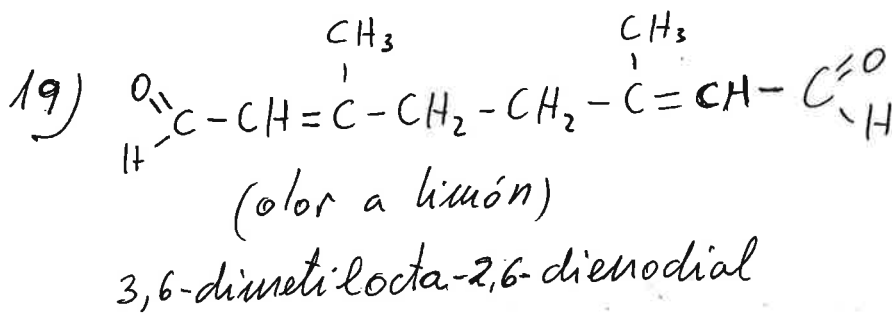 19) O=CH-CH=C(CH3)-CH2-CH2-C(CH3)=CH-C(=O)H
(olor a limón)
3,6-dimetilocta-2,6-dienodial